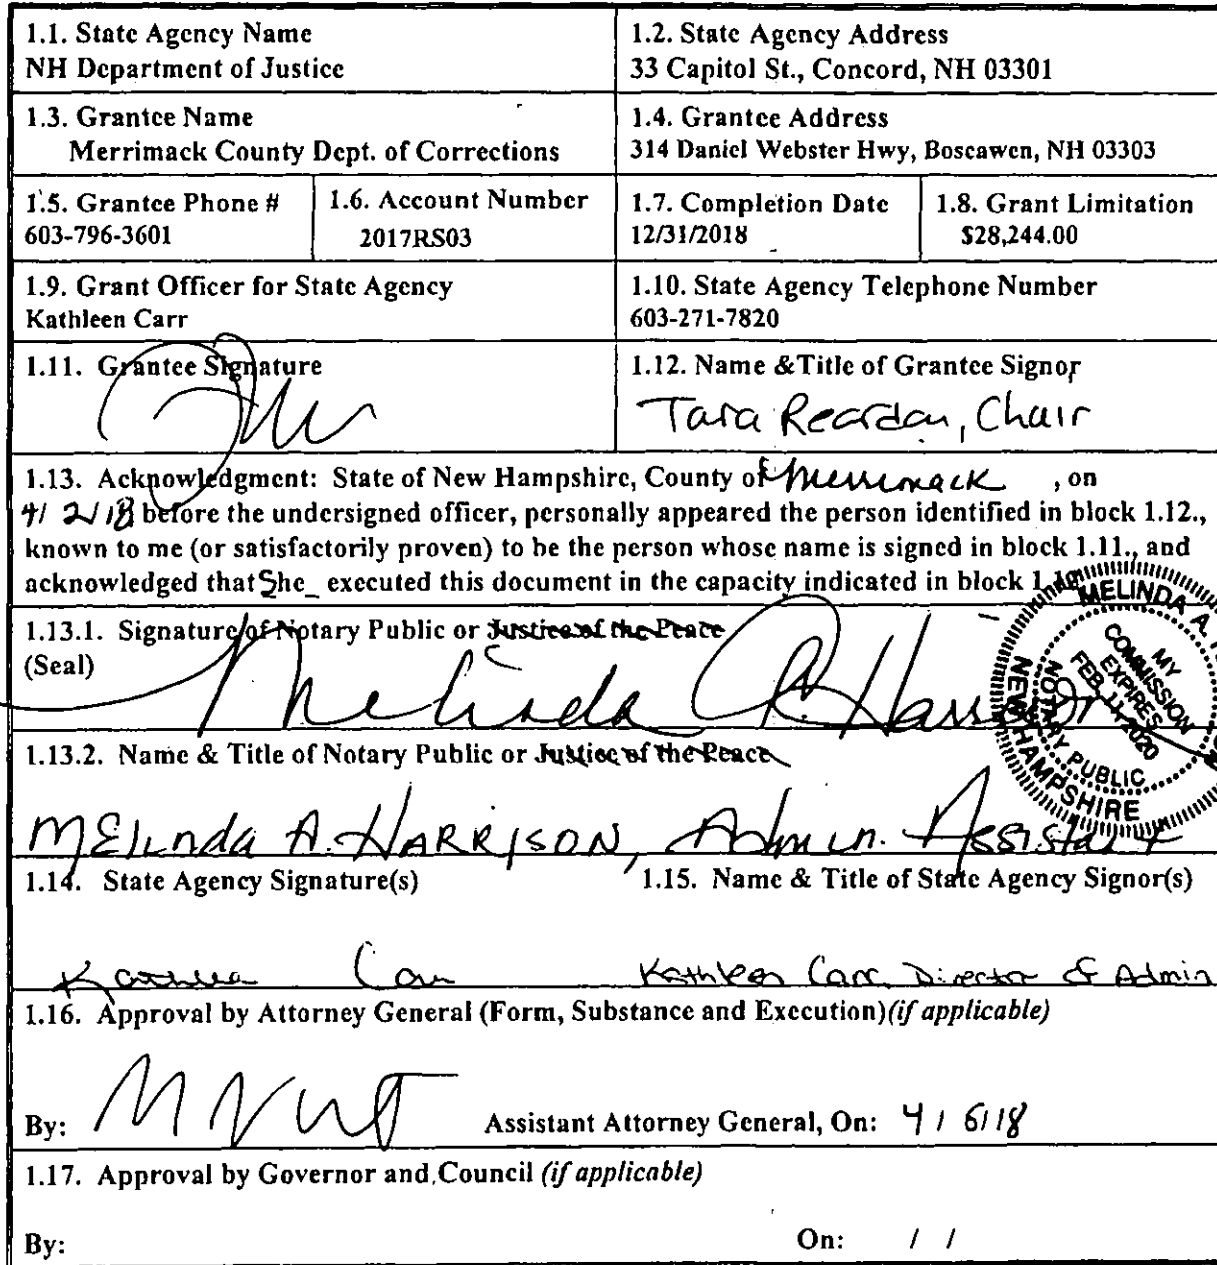 1.1. State Agency Name
NH Department of Justice
1.2. State Agency Address
33 Capitol St., Concord, NH 03301
1.3. Grantee Name
Merrimack County Dept. of Corrections
1.4. Grantee Address
314 Daniel Webster Hwy, Boscawen, NH 03303
1.5. Grantee Phone #
603-796-3601
1.6. Account Number
2017RS03
1.7. Completion Date
12/31/2018
1.8. Grant Limitation
$28,244.00
1.9. Grant Officer for State Agency
Kathleen Carr
1.10. State Agency Telephone Number
603-271-7820
1.11. Grantee Signature
1.12. Name &Title of Grantee Signor
Tara Reardon, Chair
1.13. Acknowledgment: State of New Hampshire, County of Merrimack , on
4/ 2/ 18 before the undersigned officer, personally appeared the person identified in block 1.12.,
known to me (or satisfactorily proven) to be the person whose name is signed in block 1.11., and
acknowledged that She_ executed this document in the capacity indicated in block
1.13.1. Signature of Notary Public or Justice of the Peace
(Seal)
Melinda A. Harrison
MELINDA A.
MY
COMMISSION
EXPIRES
FEB. 2020
NOTARY PUBLIC
NEW HAMPSHIRE
1.13.2. Name & Title of Notary Public or Justice of the Peace
MElinda A. HARRISON, Admin. Assistant
1.14. State Agency Signature(s)
Kathleen Carr
1.15. Name & Title of State Agency Signor(s)
Kathleen Carr, Director of Admin
1.16. Approval by Attorney General (Form, Substance and Execution)(if applicable)
By:
Assistant Attorney General, On: 4 / 6/ 18
1.17. Approval by Governor and Council (if applicable)
By:
On: / /